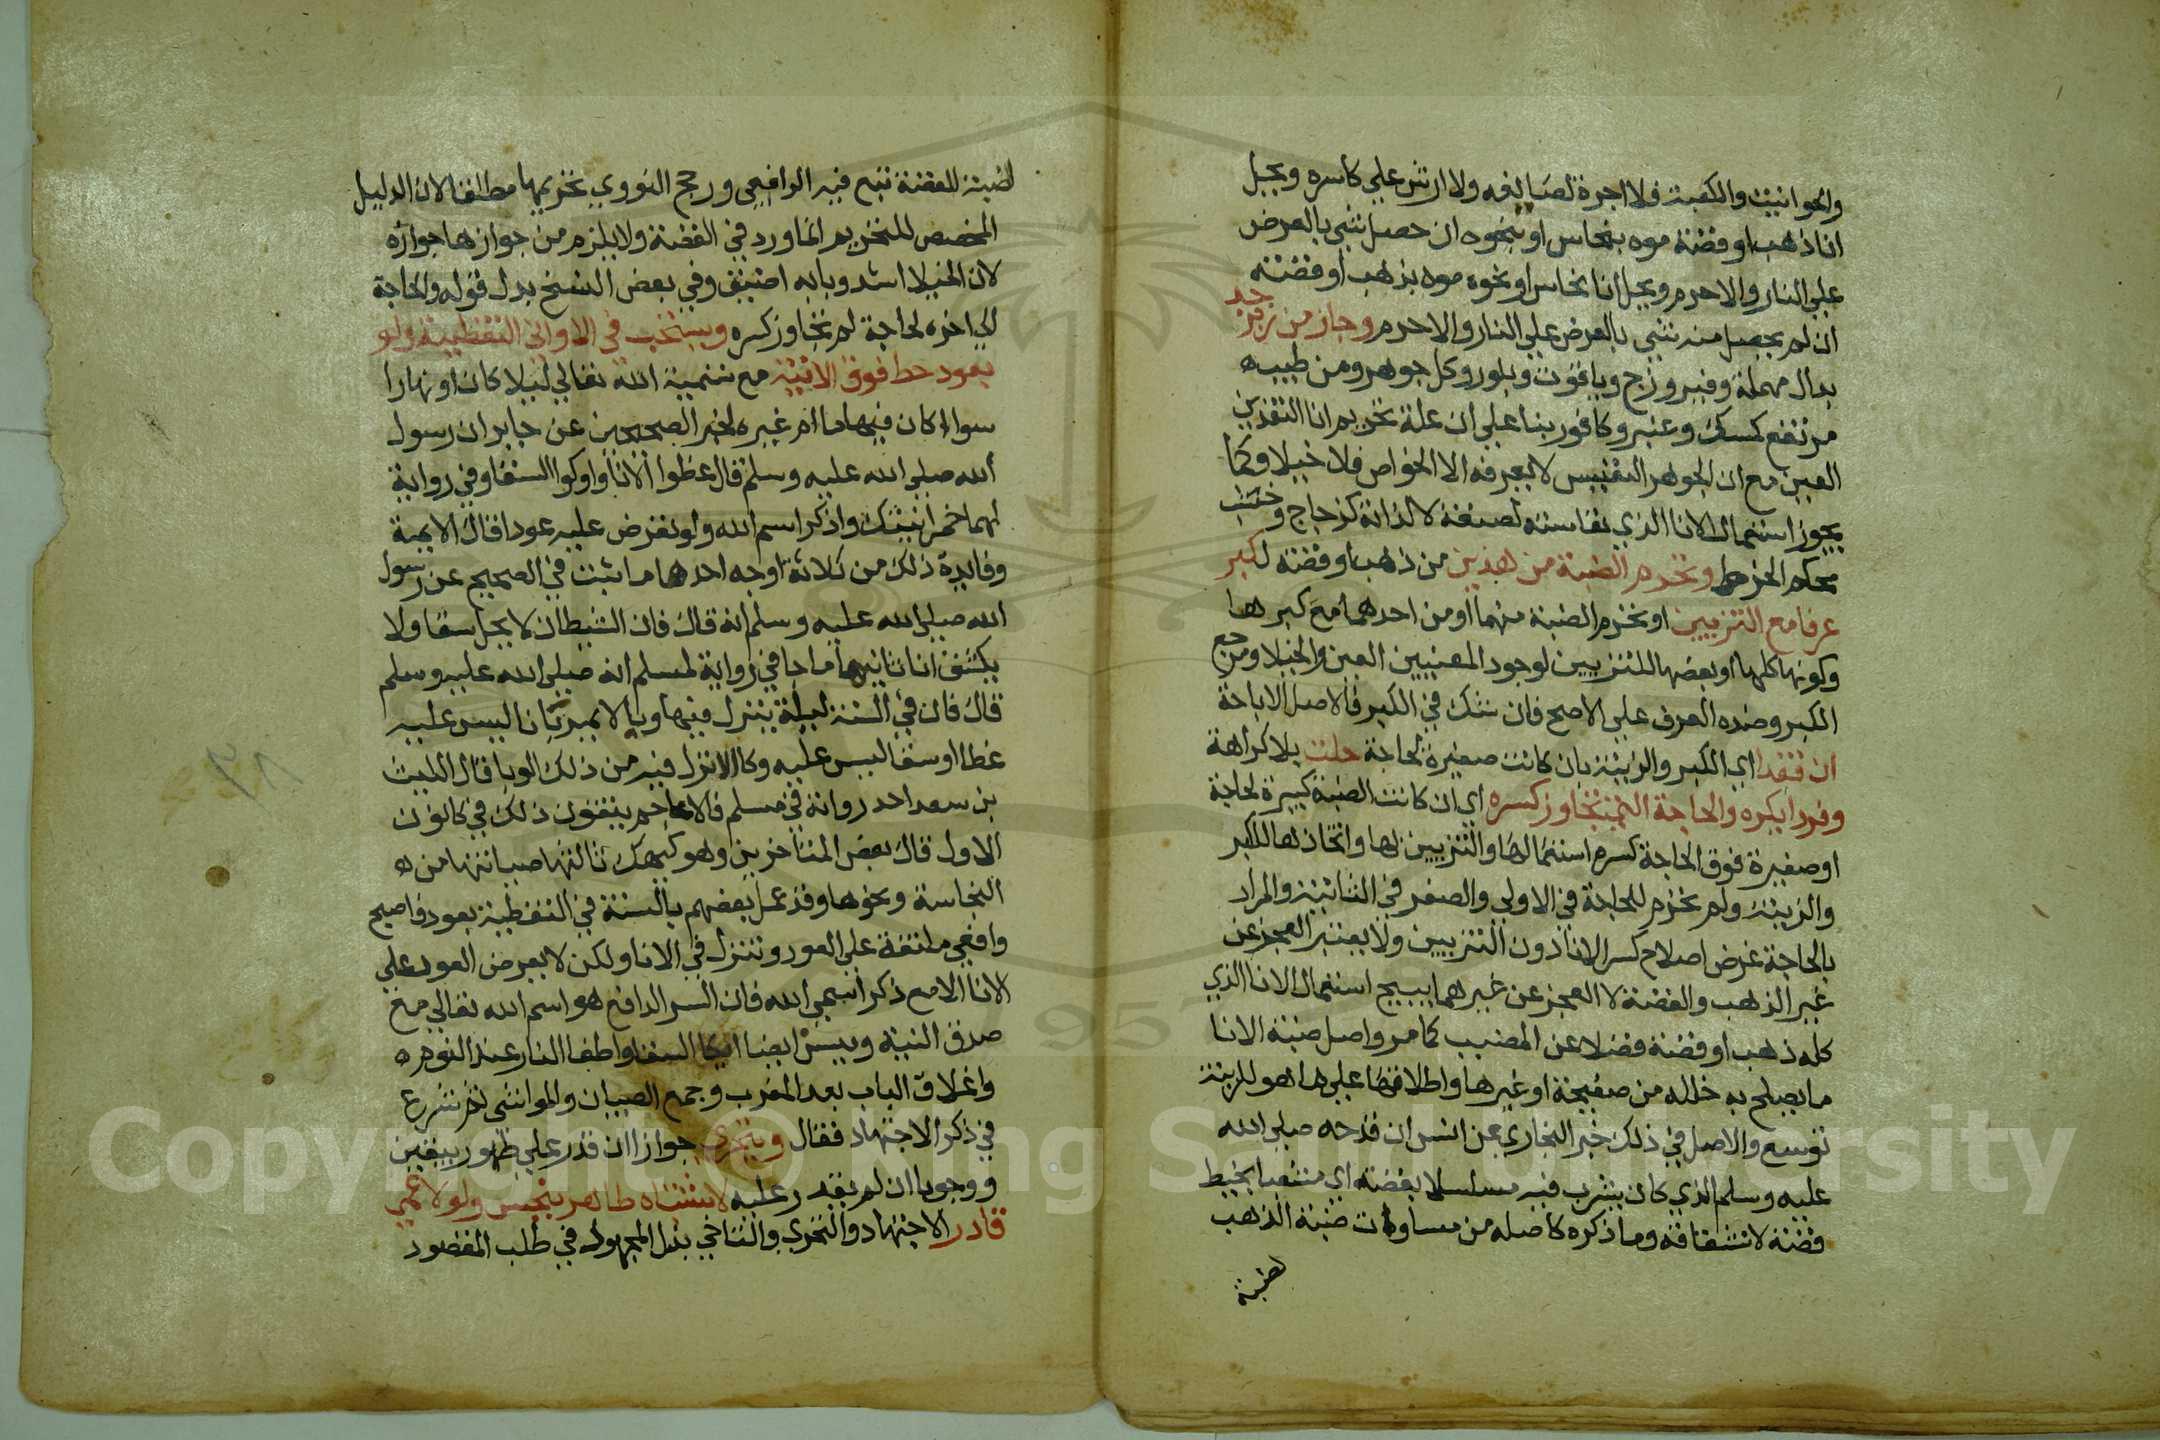 والحوانيت والكعبة فلا اجرة لصانعه ولا ارش علي كاسره ويحل
اناذهب او فضة موه بنحاس او نحوه ان حصل شي بالعرض
علي النار والاحرم ويحل انا نحاس او نحوه موه بذهب او فضة
ان لم يحصل منه شي بالعرض علي النار والاحرم وجاز من زبرجد
بدال مهملة وفيروزج وياقوت وبلور وكل جوهر ومن طيب
مرتفع كمسك وعنبر وكافور بنا علي ان علة تحريم انا النقدين
العين مع ان الجوهر النفيس لا يعرفه الا الخواص فلا خيلا وكما
يجوز استعمال الانا الذي نفاسته لصنعة لا لذاته كزجاج وخشب
محكم الخرط وتحرم الضبة من هذين من ذهب او فضة لكبر
عرفا مع التزيين او تحرم الضبة منهما او من احدهما مع كبرها
وكونها كلها او بعضها للتزيين لوجود المعنيين العين والخيلا ومرجع
الكبر وضده العرف علي الاصح فان شك في الكبر فالاصل الاباحة
ان فقدا اي الكبر والزينة بان كانت صغيرة لحاجة حلت بلا كراهة
وفردا يكره والحاجة التي تجاوز كسره اي ان كانت الضبة كبيرة لحاجة
او صغيرة فوق الحاجة كره استعمالها والتزيين بها واتخاذها للكبر
والزينة ولم تحرم للحاجة في الاولي والصغر في الثانية والمراد
بالحاجة غرض اصلاح كسر الانا دون التزيين ولا يعتبر العجز عن
غير الذهب والفضة لا العجز عن غيرهما يبيح استعمال الانا الذي
كله ذهب او فضة فضلا عن المضبب كما مر واصل ضبة الانا
ما يصلح به خلله من صفيحة او غيرها واطلاقها علي ما هو للزينة
توسع والاصل في ذلك خبر البخاري عن انس ان قدحه صلي الله
عليه وسلم الذي كان يشرب فيه مسلسلا بفضة اي مشعبا بخيط
فضة لانشقاقه وما ذكره كاصله من مساواة ضبة الذهب
لضبة
لضبة الفضة تبع فيه الرافعي ورجح النووي تحريمها مطلقا لان الدليل
المخصص للتحريم انما ورد في الفضة ولا يلزم من جوازها جوازه
لان الخيلا اشد وبابه اضيق وفي بعض النسخ بدل قوله والحاجة
الي اخره لحاجة لم تجاوز كسره ويستحب في الاواني التغطية ولو
بعود حط فوق الانية مع تسمية الله تعالي ليلا كان او نهارا
سوا كان فيها ما ام غيره لخبر الصحيحين عن جابر ان رسول
الله صلي الله عليه وسلم قال غطوا الانا واوكوا السقا وفي رواية
لهما خمر انيتك واذكر اسم الله ولو تعرض عليه عودا قال الايمة
وفايدة ذلك من ثلاثة اوجه احدها ما ثبت في الصحيح عن رسول
الله صلي الله عليه وسلم انه قال فان الشيطان لا يحل سقا ولا
يكشف انا ثانيها ما جا في رواية لمسلم انه صلي الله عليه وسلم
قال فان في السنة ليلة ينزل فيها وبا لا يمر بانا ليس عليه
غطا او سقا ليس عليه وكا الا نزل فيه من ذلك الوبا قال الليث
بن سعد احد رواته في مسلم فالاعاجم يتقون ذلك في كانون
الاول قال بعض المتاخرين وهو كيهك ثالثها صيانتها من
النجاسة ونحوها وقد عمل بعضهم بالسنة في التغطية بعود فاصبح
وافعي ملتفة علي العود وتنزل في الانا ولكن لا يعرض العود علي
الانا الا مع ذكر اسم الله فان السر الدافع هو اسم الله تعالي مع
صدق النية ويسن ايضا ايكا السقا واطفا النار عند النوم
واغلاق الباب بعد المغرب وجمع الصبيان والمواشي ثم شرع
في ذكر الاجتهاد فقال ويتحري جوازا ان قدر علي طهور بيقين
ووجوبا ان لم يقدر عليه لاشتباه طاهر بنجس ولو لاعمي
قادر الاجتهاد والتحري والتاخي بذل المجهود في طلب المقصود